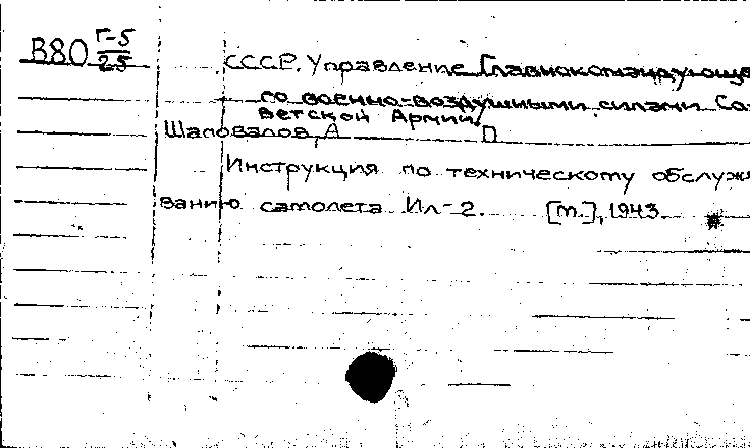 В80 Г-5/25
СССР. Управление Главнокомандующе
го военно-воздушными силами Со
ветской Армии
Шаповалов, А П
Инструкция по техническому обслужи
ванию самолета Ил-2. [М.], 1943.